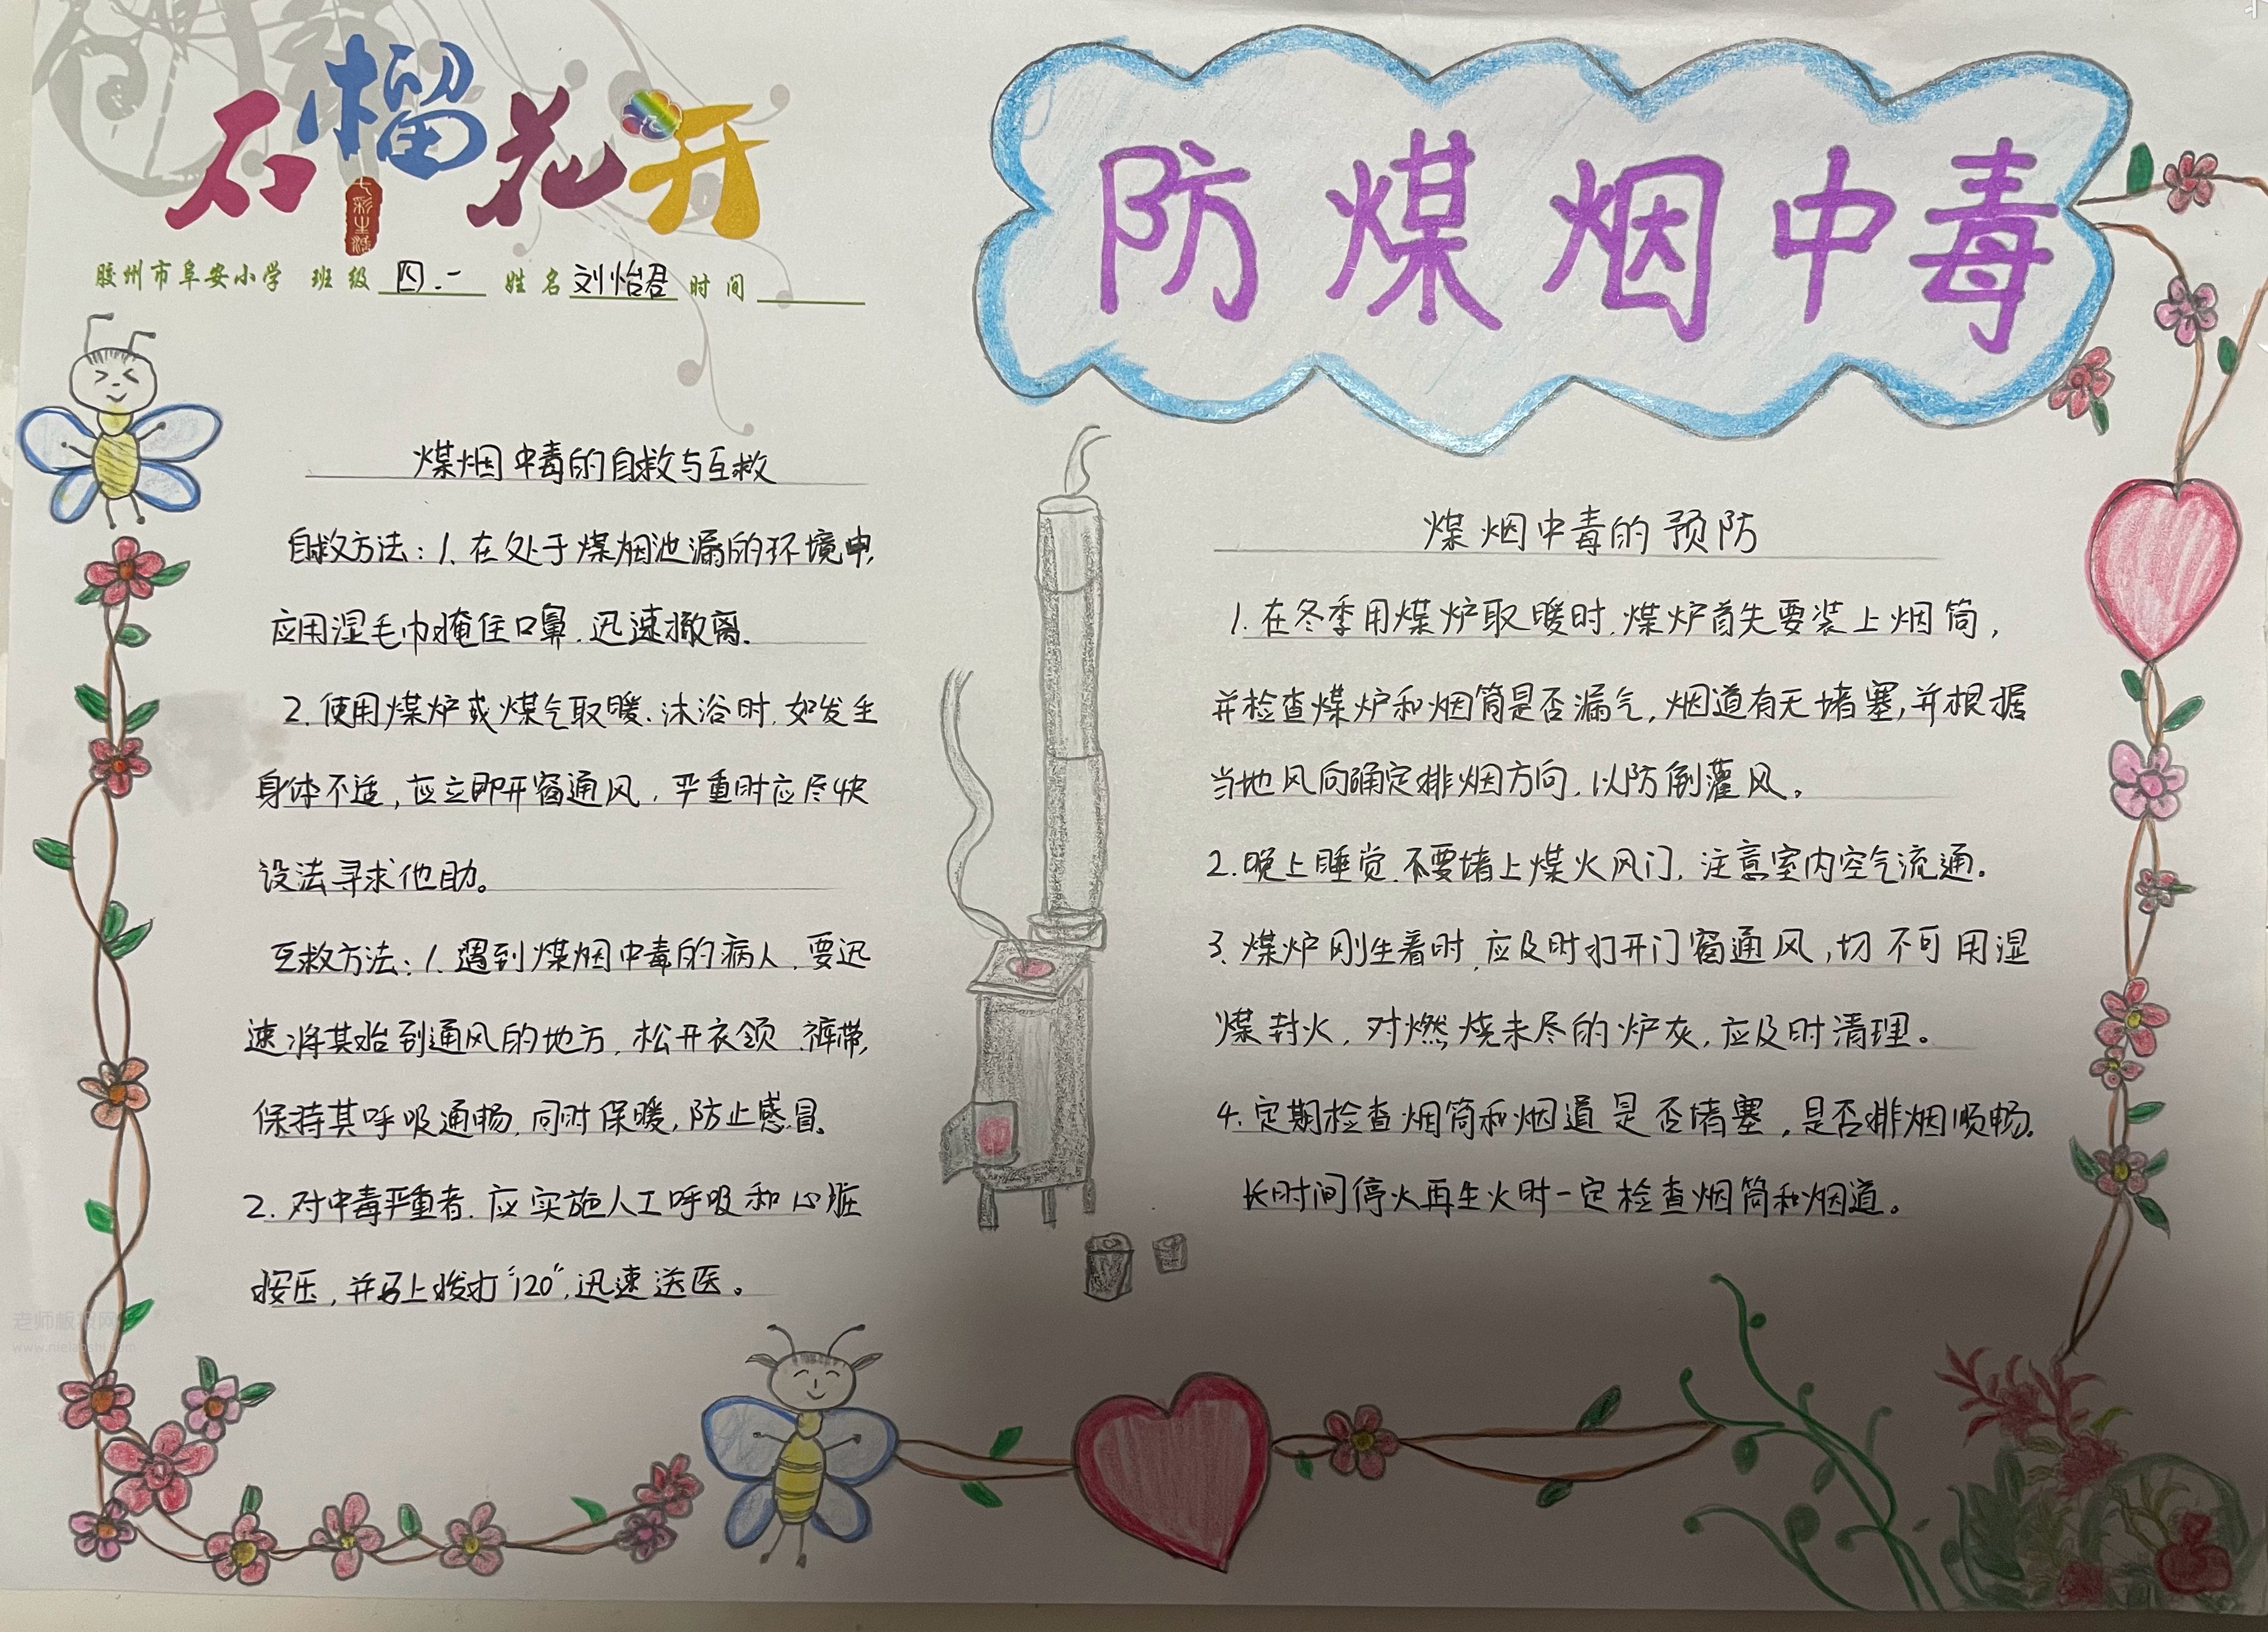 石榴花开
七彩生活
胶州市阜安小学 班级 四.一 姓名 刘怡君 时间
防煤烟中毒
煤烟中毒的自救与互救
自救方法:1.在处于煤烟池漏的环境中,
应用湿毛巾掩住口鼻.迅速撤离.
2.使用煤炉或煤气取暖.沐浴时.如发生
身体不适,应立即开窗通风.严重时应尽快
设法寻求他助。
互救方法:1.遇到煤烟中毒的病人.要迅
速将其抬到通风的地方.松开衣领.裤带,
保持其呼吸通畅.同时保暖,防止感冒。
2.对中毒严重者.应实施人工呼吸和心脏
按压,并马上拨打“120”,迅速送医。
煤烟中毒的预防
1.在冬季用煤炉取暖时.煤炉首先要装上烟筒,
并检查煤炉和烟筒是否漏气,烟道有无堵塞,并根据
当地风向确定排烟方向.以防倒灌风。
2.晚上睡觉.不要堵上煤火风门.注意室内空气流通。
3.煤炉刚生着时.应及时打开门窗通风,切不可用湿
煤封火.对燃烧未尽的炉灰.应及时清理。
4.定期检查烟筒和烟道是否堵塞,是否排烟顺畅.
长时间停火再生火时一定检查烟筒和烟道。
老师板报网